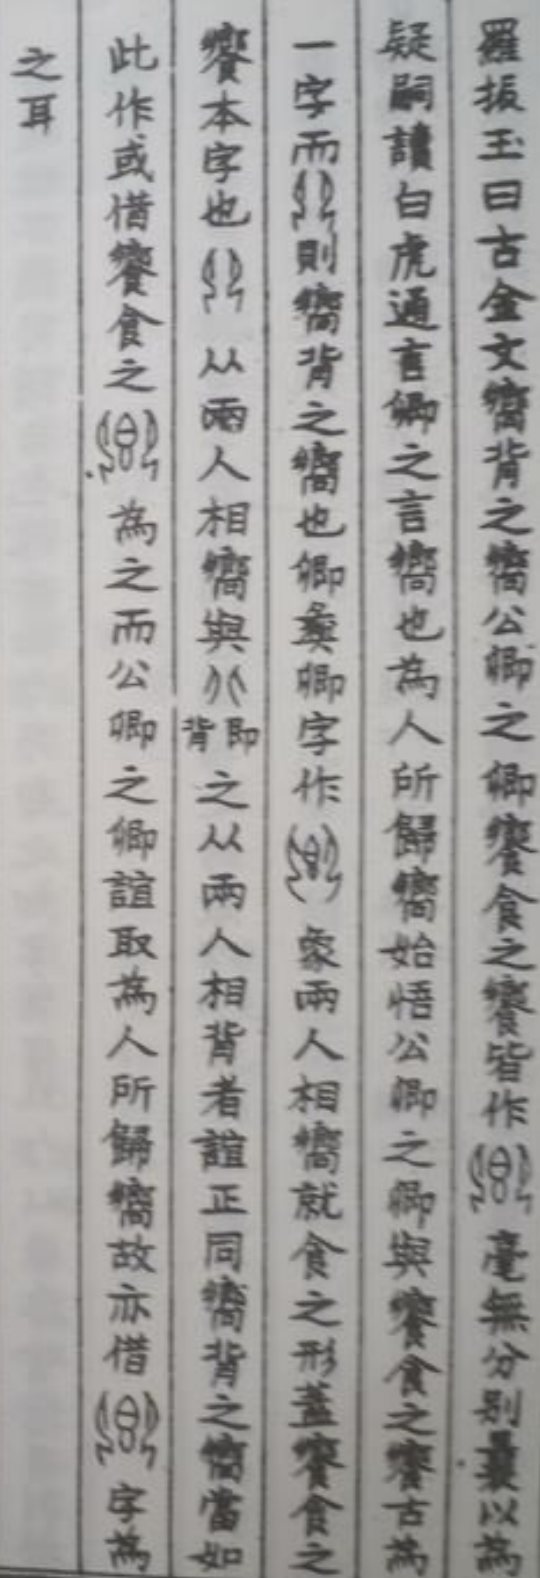 羅振玉曰古金文嚮背之嚮公卿之卿饗食之饗皆作毫無分别曩以為
疑嗣讀白虎通言卿之言嚮也為人所歸嚮始悟公卿之卿與饗食之饗古為
一字而則嚮背之嚮也卿彝卿字作象兩人相嚮就食之形蓋饗食之
饗本字也从兩人相嚮與即背之从兩人相背者誼正同嚮背之嚮當如
此作或借饗食之為之而公卿之卿誼取為人所歸嚮故亦借字為
之耳